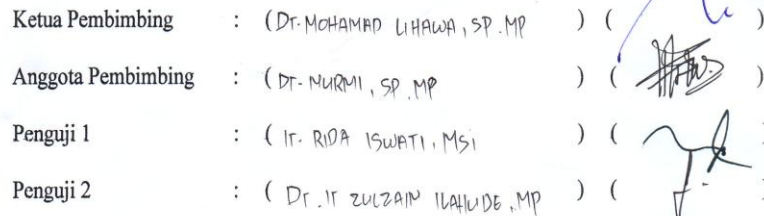 Ketua Pembimbing : (Dr. MOHAMAD LIHAWA, SP. MP ) ( )
Anggota Pembimbing : (Dr. NURMI, SP. MP ) ( )
Penguji 1 : ( Ir. RIDA ISWATI, MSi ) (
Penguji 2 : ( Dr. Ir ZULZAIN ILAHUDE, MP ) (